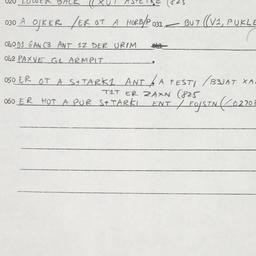 020 LOWER BACK
030 A OJKER /ER OT A HORB/P 031 — BUT ((V1, PUKLE
040 DS GANCB ANT 1Z DER URIM
042 PAXVE GL ARMPIT
050 ER OT A S+TARK1 ANT / A FEST1 /BJAT XA
TIT ER ZAXN (825
060 ER HOT A PUR S+TARK1 ENT / FOJSTN (/0270